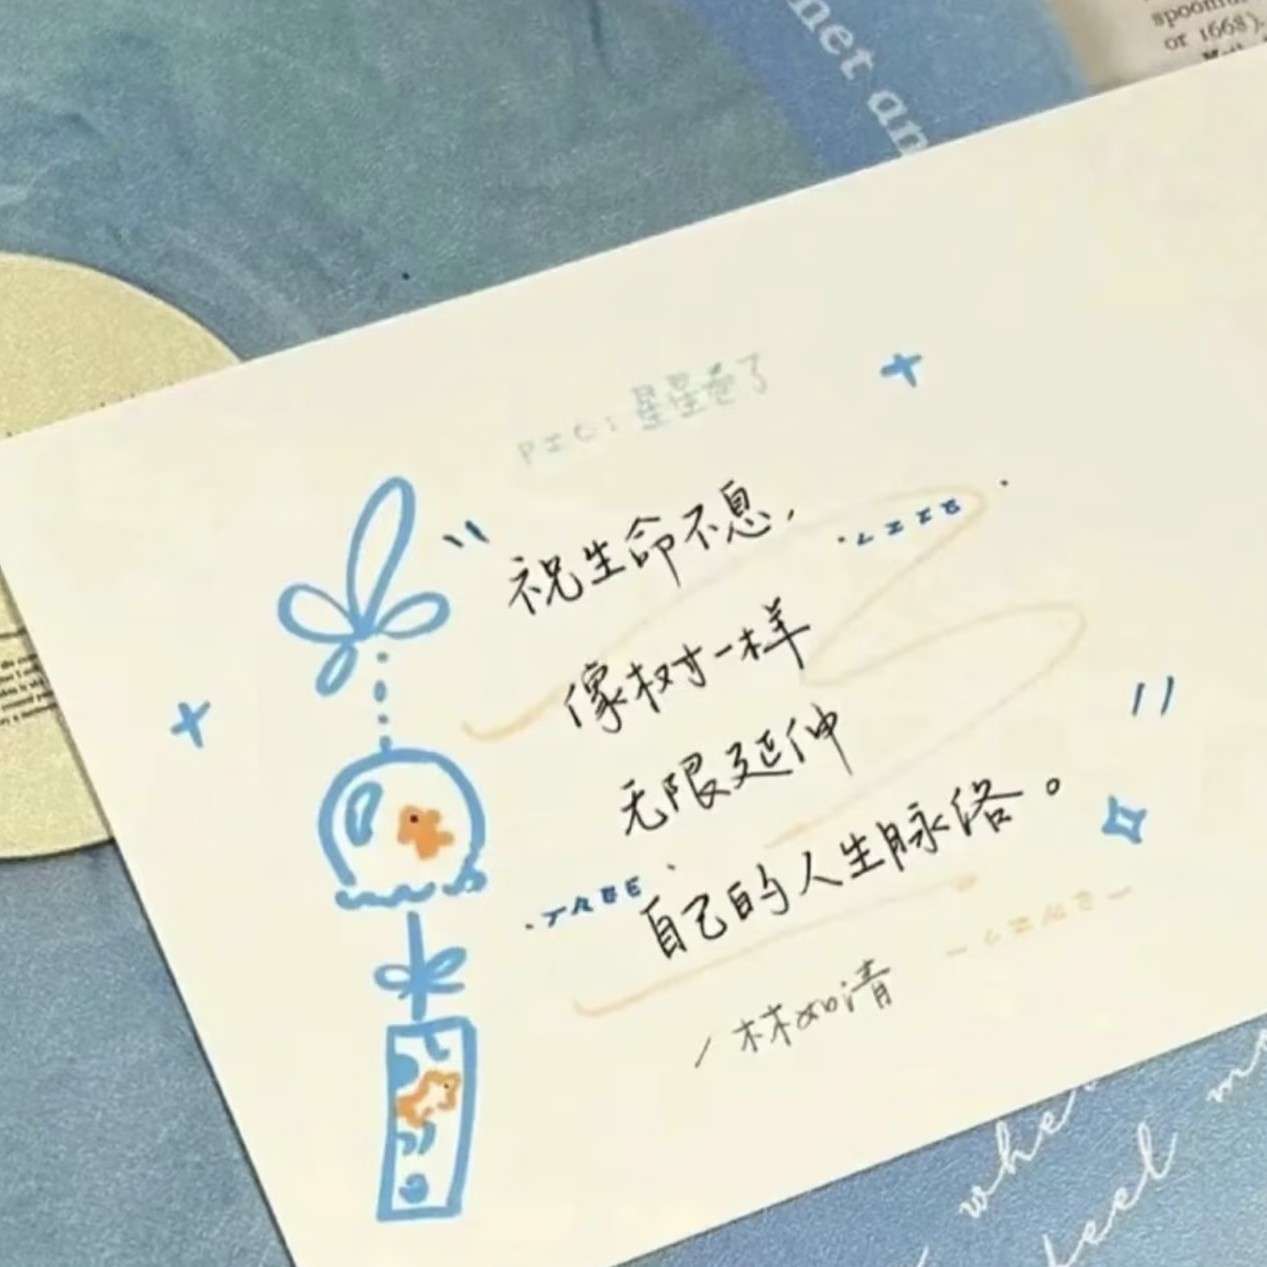 net an
spoonfu
or 1668).
PIC:星星卷了
祝生命不息,
LIFE
像树一样
无限延伸
自己的人生脉络。
TREE
林如清
whe
feel m